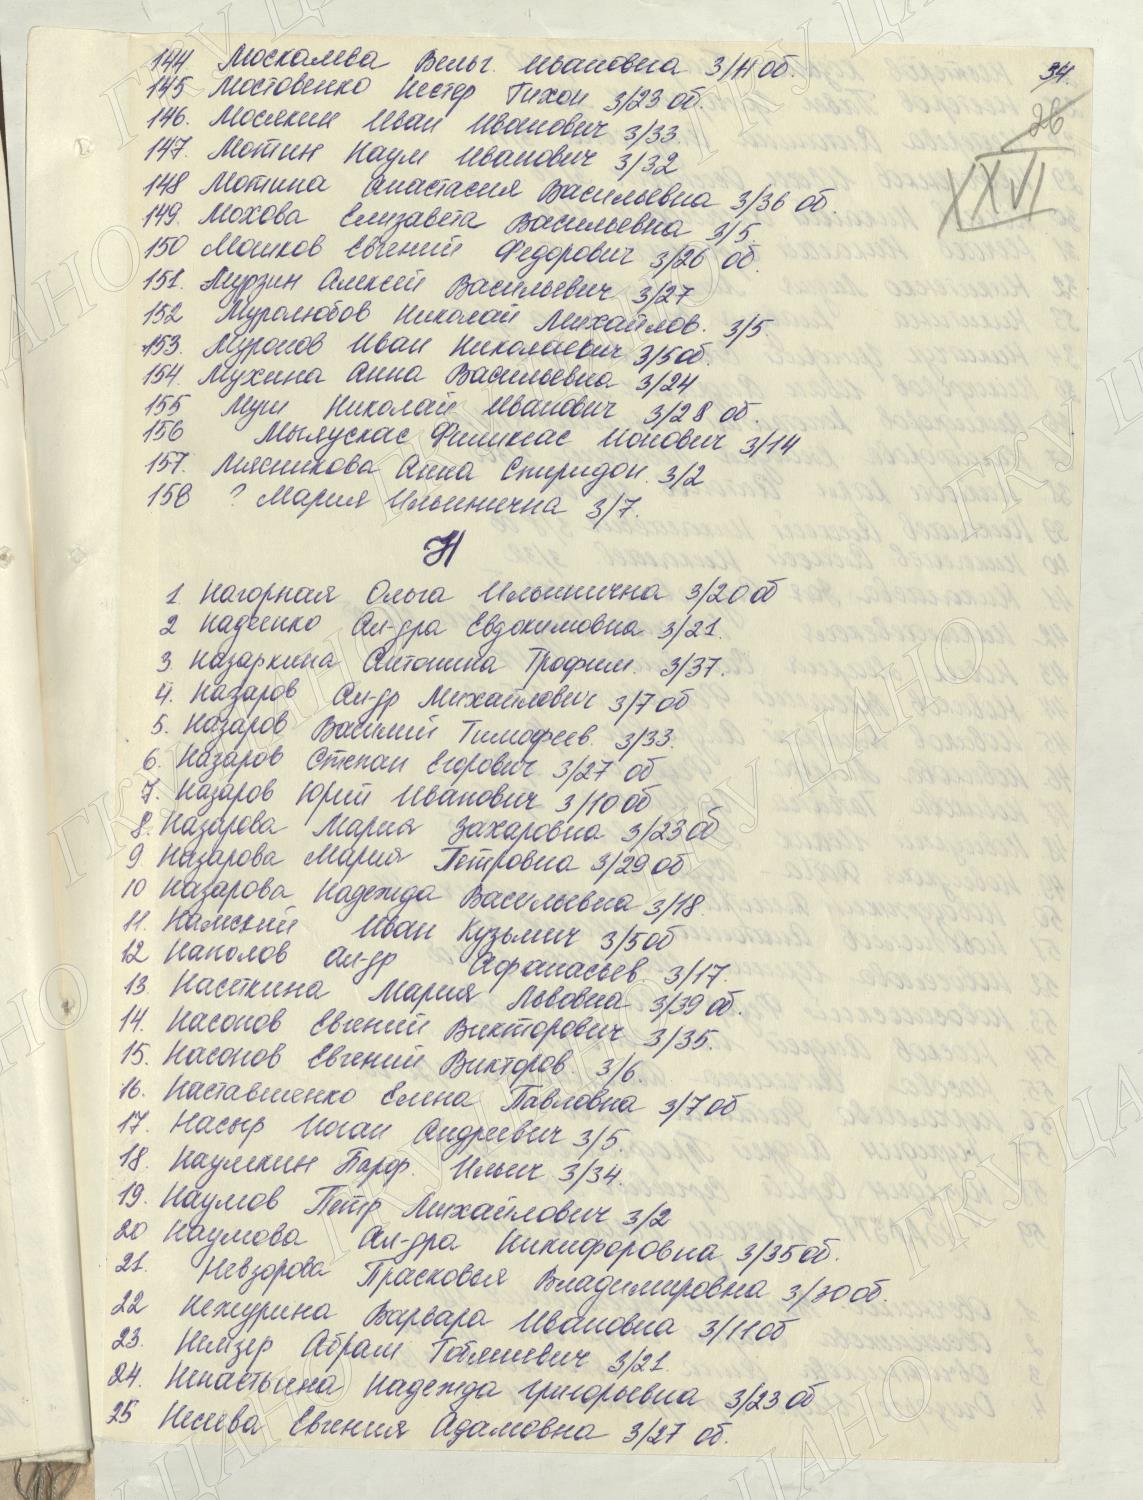 34.
26
XXVI
144 Москалева Вельг. Ивановна 3/11 об.
145 Мостовенко Нестер Тихон 3/23 об.
146. Мосякин Иван Иванович 3/33.
147. Мотин Наум Иванович 3/32
148 Мотина Анастасия Васильевна 3/36 об.
149. Мохова Елизавета Васильевна 3/5.
150 Мошков Евгений Федорович 3/26 об.
151. Мурзин Алексей Васильевич 3/27
152 Муролюбов Николай Михайлов. 3/5.
153. Муронов Иван Николаевич 3/5об.
154. Мухина Анна Васильевна 3/24
155 Муш Николай Иванович 3/28 об.
156 Мылускас Феликсас Ионович 3/14
157. Мясникова Анна Спиридон. 3/2
158 ? Мария Ильинична 3/7.
Н
1 Нагорная Ольга Ильинична 3/20об
2 Надеенко Ал-дра Евдокимовна 3/21.
3. Назаркина Антонина Трофим. 3/37.
4. Назаров Ал-др Михайлович 3/7об
5. Назаров Василий Тимофеев. 3/33.
6. Назаров Степан Егорович 3/27 об
7. Назаров Юрий Иванович 3/10об
8. Назарова Мария Захаровна 3/23об
9 Назарова Мария Петровна 3/29об
10 Назарова Надежда Васильевна 3/18.
11. Намский Иван Кузьмич 3/5об
12 Наполов Ал-др Афанасьев. 3/17.
13. Насткина Мария Львовна 3/39 об.
14. Насонов Евгений Викторович 3/35.
15. Насонов Евгений Викторов. 3/6.
16. Наставшенко Елена Павловна 3/7об
17. Насыр Иоган Андреевич 3/5.
18. Наумкин Парф. Ильич 3/34.
19. Наумов Петр Михайлович 3/2
20 Наумова Ал-дра Никифоровна 3/35об.
21. Невзорова Прасковья Владимировна 3/30об.
22 Нежурина Варвара Ивановна 3/11об
23. Немзер Абрам 3/21.
24. Ненастьина Надежда Григорьевна 3/23об
25 Несева Евгения Адамовна 3/27 об.
ГКУ ЦАНО